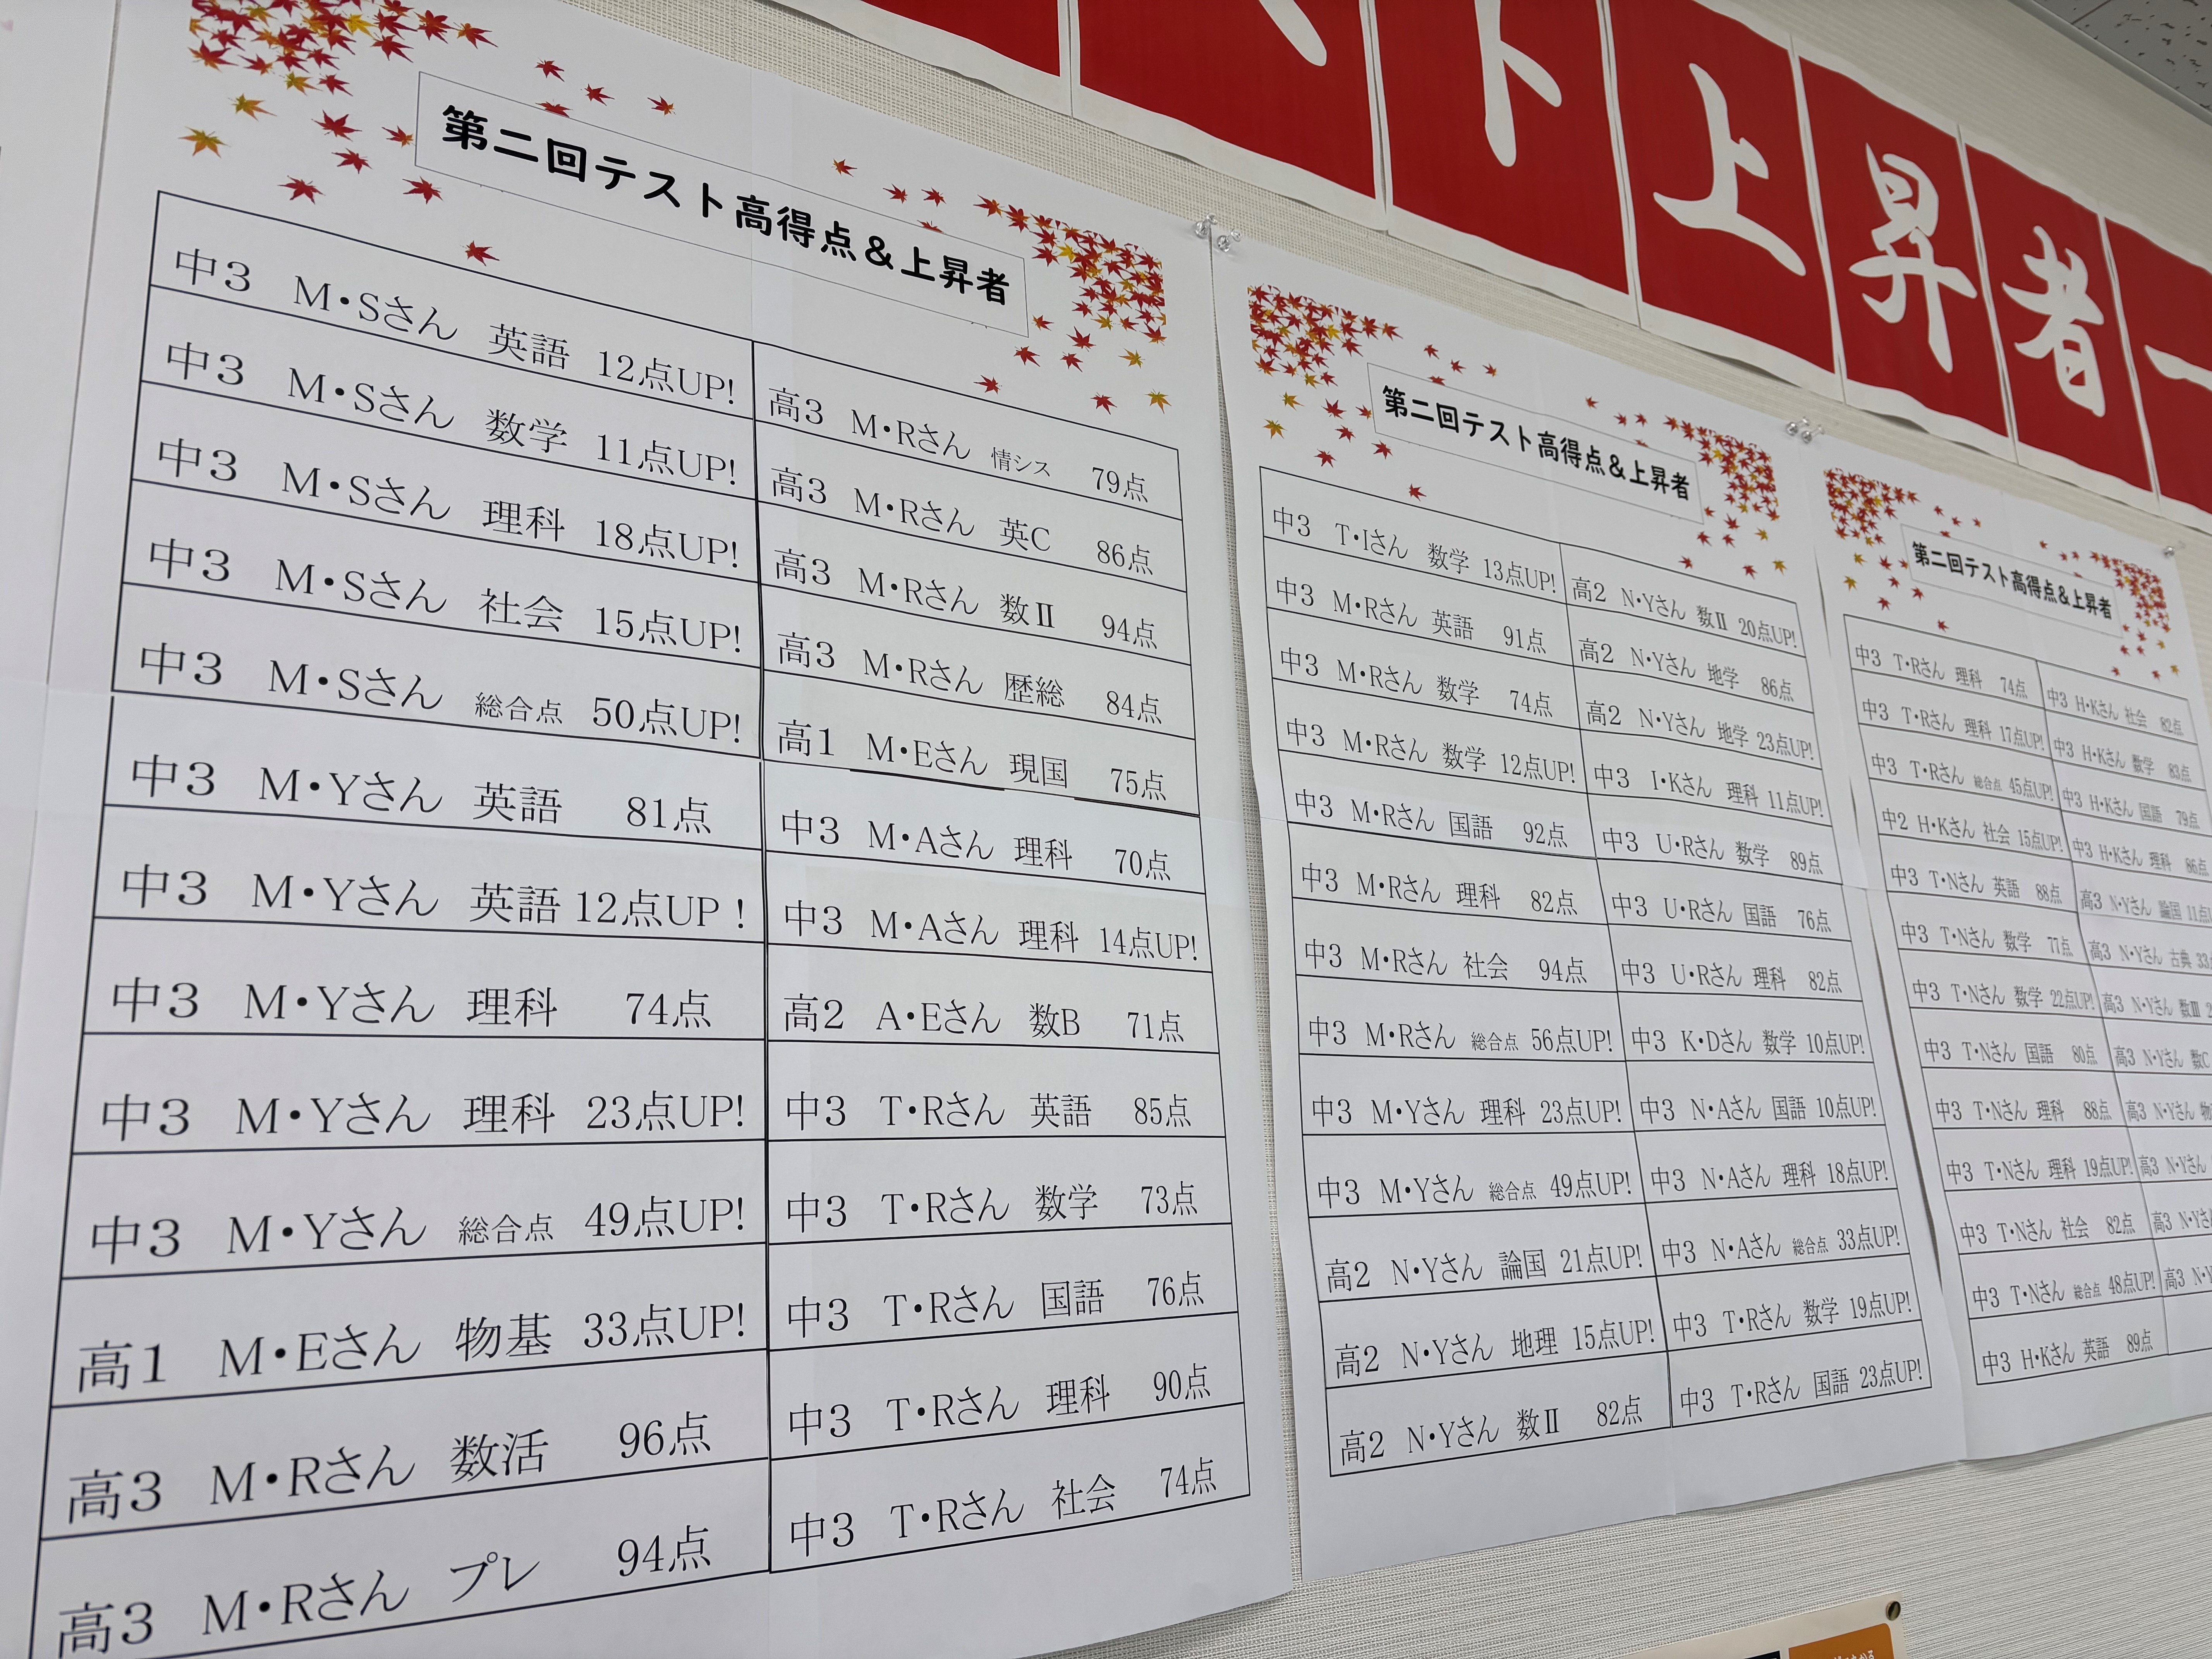 ト上昇者一
第二回テスト高得点&上昇者
中3 M・Sさん 英語 12点UP!
中3 M・Sさん 数学 11点UP!
中3 M・Sさん 理科 18点UP!
中3 M・Sさん 社会 15点UP!
中3 M・Sさん 総合点 50点UP!
中3 M・Yさん 英語 81点
中3 M・Yさん 英語 12点UP!
中3 M・Yさん 理科 74点
中3 M・Yさん 理科 23点UP!
中3 M・Yさん 総合点 49点UP!
高1 M・Eさん 物基 33点UP!
高3 M・Rさん 数活 96点
高3 M・Rさん プレ 94点
高3 M・Rさん 情シス 79点
高3 M・Rさん 英C 86点
高3 M・Rさん 数Ⅱ 94点
高3 M・Rさん 歴総 84点
高1 M・Eさん 現国 75点
中3 M・Aさん 理科 70点
中3 M・Aさん 理科 14点UP!
高2 A・Eさん 数B 71点
中3 T・Rさん 英語 85点
中3 T・Rさん 数学 73点
中3 T・Rさん 国語 76点
中3 T・Rさん 理科 90点
中3 T・Rさん 社会 74点
第二回テスト高得点&上昇者
中3 T・Iさん 数学 13点UP!
中3 M・Rさん 英語 91点
中3 M・Rさん 数学 74点
中3 M・Rさん 数学 12点UP!
中3 M・Rさん 国語 92点
中3 M・Rさん 理科 82点
中3 M・Rさん 社会 94点
中3 M・Rさん 総合点 56点UP!
中3 M・Yさん 理科 23点UP!
中3 M・Yさん 総合点 49点UP!
高2 N・Yさん 論国 21点UP!
高2 N・Yさん 地理 15点UP!
高2 N・Yさん 数Ⅱ 82点
高2 N・Yさん 数Ⅱ 20点UP!
高2 N・Yさん 地学 86点
高2 N・Yさん 地学 23点UP!
中3 I・Kさん 理科 11点UP!
中3 U・Rさん 数学 89点
中3 U・Rさん 国語 76点
中3 U・Rさん 理科 82点
中3 K・Dさん 数学 10点UP!
中3 N・Aさん 国語 10点UP!
中3 N・Aさん 理科 18点UP!
中3 N・Aさん 総合点 33点UP!
中3 T・Rさん 数学 19点UP!
中3 T・Rさん 国語 23点UP!
第二回テスト高得点&上昇者
中3 T・Rさん 理科 74点
中3 T・Rさん 理科 17点UP!
中3 T・Rさん 総合点 45点UP!
中2 H・Kさん 社会 15点UP!
中3 T・Nさん 英語 88点
中3 T・Nさん 数学 77点
中3 T・Nさん 数学 22点UP!
中3 T・Nさん 国語 80点
中3 T・Nさん 理科 88点
中3 T・Nさん 理科 19点UP!
中3 T・Nさん 社会 82点
中3 T・Nさん 総合点 48点UP!
中3 H・Kさん 英語 89点
中3 H・Kさん 社会 82点
中3 H・Kさん 数学 83点
中3 H・Kさん 国語 79点
中3 H・Kさん 理科 86点
高3 N・Yさん 論国 11点
高3 N・Yさん 古典 33
高3 N・Yさん 数Ⅲ
高3 N・Yさん 数C
高3 N・Yさん
高3 N・Yさん
高3 N・Yさ
高3 N・Y